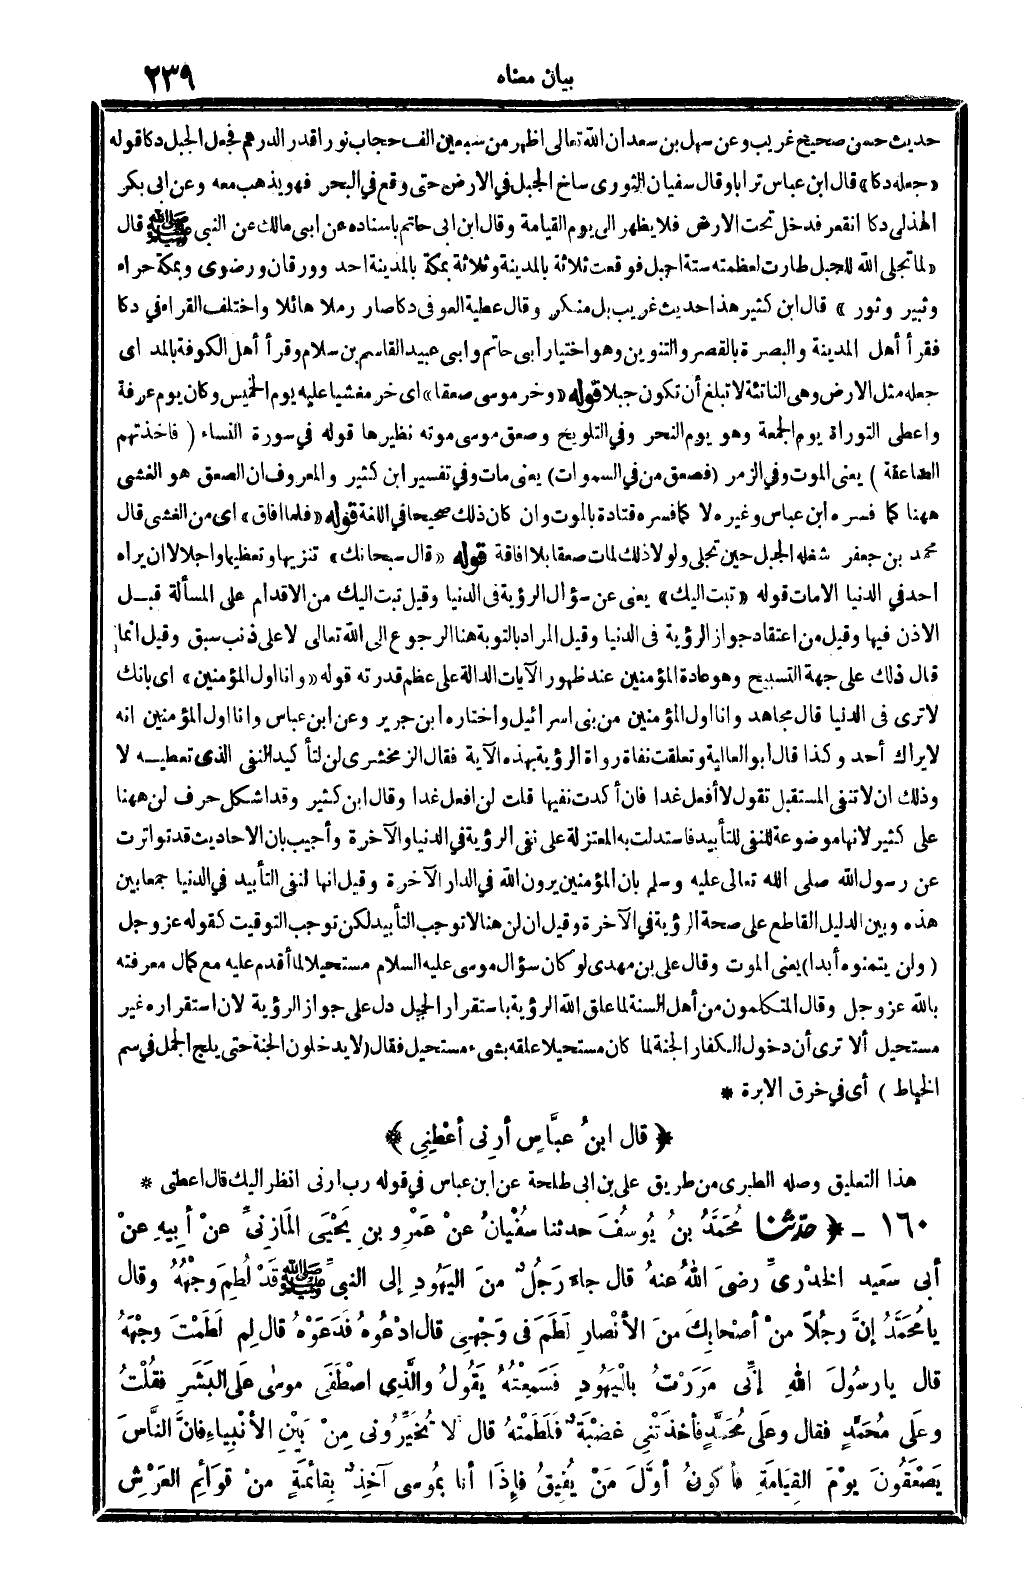 بيان معناه
٢٣٩
حديث حسن صحيح غريب وعن سهل بن سعد ان الله تعالى اظهر من سبعين الف حجاب نورا قدر الدرهم فجعل الجبل دكا قوله
«جعله دكا» قال ابن عباس ترابا وقال سفيان الثوري ساخ الجبل في الارض حتى وقع في البحر فهو يذهب معه وعن ابى بكر
الهذلى دكا انقعر فدخل تحت الارض فلا يظهر الى يوم القيامة وقال ابن ابى حاتم باسناده عن ابى مالك عن النبى ﷺ قال
«لما تجلى الله للجبل طارت لعظمته ستة اجبل فوقعت ثلاثة بالمدينة وثلاثة بمكة بالمدينة احد وورقان ورضوى وبمكة حراء
وثبير وثور» قال ابن كثير هذا حديث غريب بل منكر وقال عطية العوفى دكا صار رملا هائلا واختلف القراء في دكا
فقرأ أهل المدينة والبصرة بالقصر والتنوين وهو اختيار أبى حاتم وابى عبيد القاسم بن سلام وقرأ أهل الكوفة بالمد اى
جعله مثل الارض وهى الناتئة لا تبلغ أن تكون جبلا قوله «وخر موسى صعقا» اى خر مغشيا عليه يوم الخميس وكان يوم عرفة
واعطى التوراة يوم الجمعة وهو يوم النحر وفي التلويح وصعق موسى موته نظيرها قوله في سورة النساء ( فاخذتهم
الصاعقة ) يعنى الموت وفي الزمر (فصعق من في السموات) يعنى مات وفي تفسير ابن كثير والمعروف ان الصعق هو الغشى
ههنا كما فسره ابن عباس وغيره لا كما فسره قتادة بالموت وان كان ذلك صحيحا في اللغة قوله «فلما افاق» اى من الغشى قال
محمد بن جعفر شغله الجبل حين تجلى ولولا ذلك لمات صعقا بلا افاقة قوله «قال سبحانك» تنزيها وتعظيما واجلالا ان يراه
احد في الدنيا الا مات قوله «تبت اليك» يعنى عن سؤال الرؤية فى الدنيا وقيل تبت اليك من الاقدام على المسألة قبل
الاذن فيها وقيل من اعتقاد جواز الرؤية فى الدنيا وقيل المراد بالتوبة هنا الرجوع الى الله تعالى لا على ذنب سبق وقيل انما
قال ذلك على جهة التسبيح وهو عادة المؤمنين عند ظهور الآيات الدالة على عظم قدرته قوله «وانا اول المؤمنين» اى بانك
لا ترى فى الدنيا قال مجاهد وانا اول المؤمنين من بنى اسرائيل واختاره ابن جرير وعن ابن عباس وانا اول المؤمنين انه
لا يراك أحد وكذا قال ابو العالية وتعلقت نفاة رواة الرؤية بهذه الآية فقال الزمخشرى لن لتأكيد النفى الذى تعطيه لا
وذلك ان لا تنفى المستقبل تقول لا أفعل غدا فان أكدت نفيها قلت لن افعل غدا وقال ابن كثير وقد اشكل حرف لن ههنا
على كثير لانها موضوعة للنفى للتأبيد فاستدلت به المعتزلة على نفى الرؤية في الدنيا والآخرة وأجيب بان الاحاديث قد تواترت
عن رسول الله صلى الله تعالى عليه وسلم بان المؤمنين يرون الله في الدار الآخرة وقيل انها لنفى التأبيد في الدنيا جمعا بين
هذه وبين الدليل القاطع على صحة الرؤية في الآخرة وقيل ان لن هنا لا توجب التأبيد لكن توجب التوقيت كقوله عز وجل
(ولن يتمنوه أبدا) يعنى الموت وقال على بن مهدى لو كان سؤال موسى عليه السلام مستحيلا لما أقدم عليه مع كمال معرفته
بالله عز وجل وقال المتكلمون من أهل السنة لما علق الله الرؤية باستقرار الجبل دل على جواز الرؤية لان استقراره غير
مستحيل ألا ترى أن دخول الكفار الجنة لما كان مستحيلا علقه بشىء مستحيل فقال (لا يدخلون الجنة حتى يلج الجمل في سم
الخياط ) أى في خرق الابرة *
﴿ قال ابنُ عبَّاسٍ أرنى أعْطِنِى ﴾
هذا التعليق وصله الطبرى من طريق على بن ابى طلحة عن ابن عباس في قوله رب ارنى انظر اليك قال اعطنى *
١٦٠ - ﴿ حدّثنا مُحَمَّدُ بنُ يُوسُفَ حدثنا سفْيانُ عنْ عَمْرِو بنِ يَحْيَى المَازِنىِّ عنْ أبِيهِ عنْ
أبى سَعِيد الخدْرىِّ رضىَ اللهُ عنهُ قال جاءَ رَجُلٌ منَ اليَهُودِ إلى النبىِّ ﷺ قَدْ لُطِمَ وجْهُهُ وقال
يا مُحَمَّدُ إنَّ رجُلاً منْ أصْحابِكَ منَ الأنْصارِ لَطَمَ فى وَجْهِى قال ادْعُوهُ فَدَعَوْهُ قال لِمَ لَطَمْتَ وجْهَهُ
قال يا رسُولَ اللهِ إنِّى مَرَرْتُ بالْيَهُودِ فَسَمِعْتُهُ يَقُولُ والَّذِى اصْطَفَى موسٰى علَى البَشَرِ فقُلْتُ
وعلَى مُحَمَّدٍ فقال وعلَى مُحَمَّدٍ فأخذَتْنى غضْبَةٌ فَلَطَمْتهُ قال لاَ تُخَيِّرُونى مِنْ بَيْنِ الأنْبِياءِ فإنَّ النَّاسَ
يَصْعَقُونَ يوْمَ القِيَامَةِ فأكونُ أوَّلَ مَنْ يُفِيقُ فإذَا أنا بمُوسى آخِذٌ بِقائمَةٍ منْ قوَائِمِ العَرْشِ